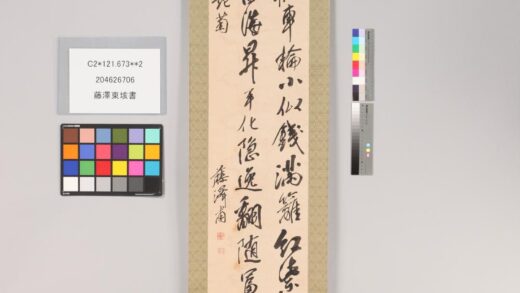 C2*121.673**2
204626706
藤澤東垓書
車輪小似錢滿籬紅紫
海昇平化隐逸翻随富
菊
藤澤甫